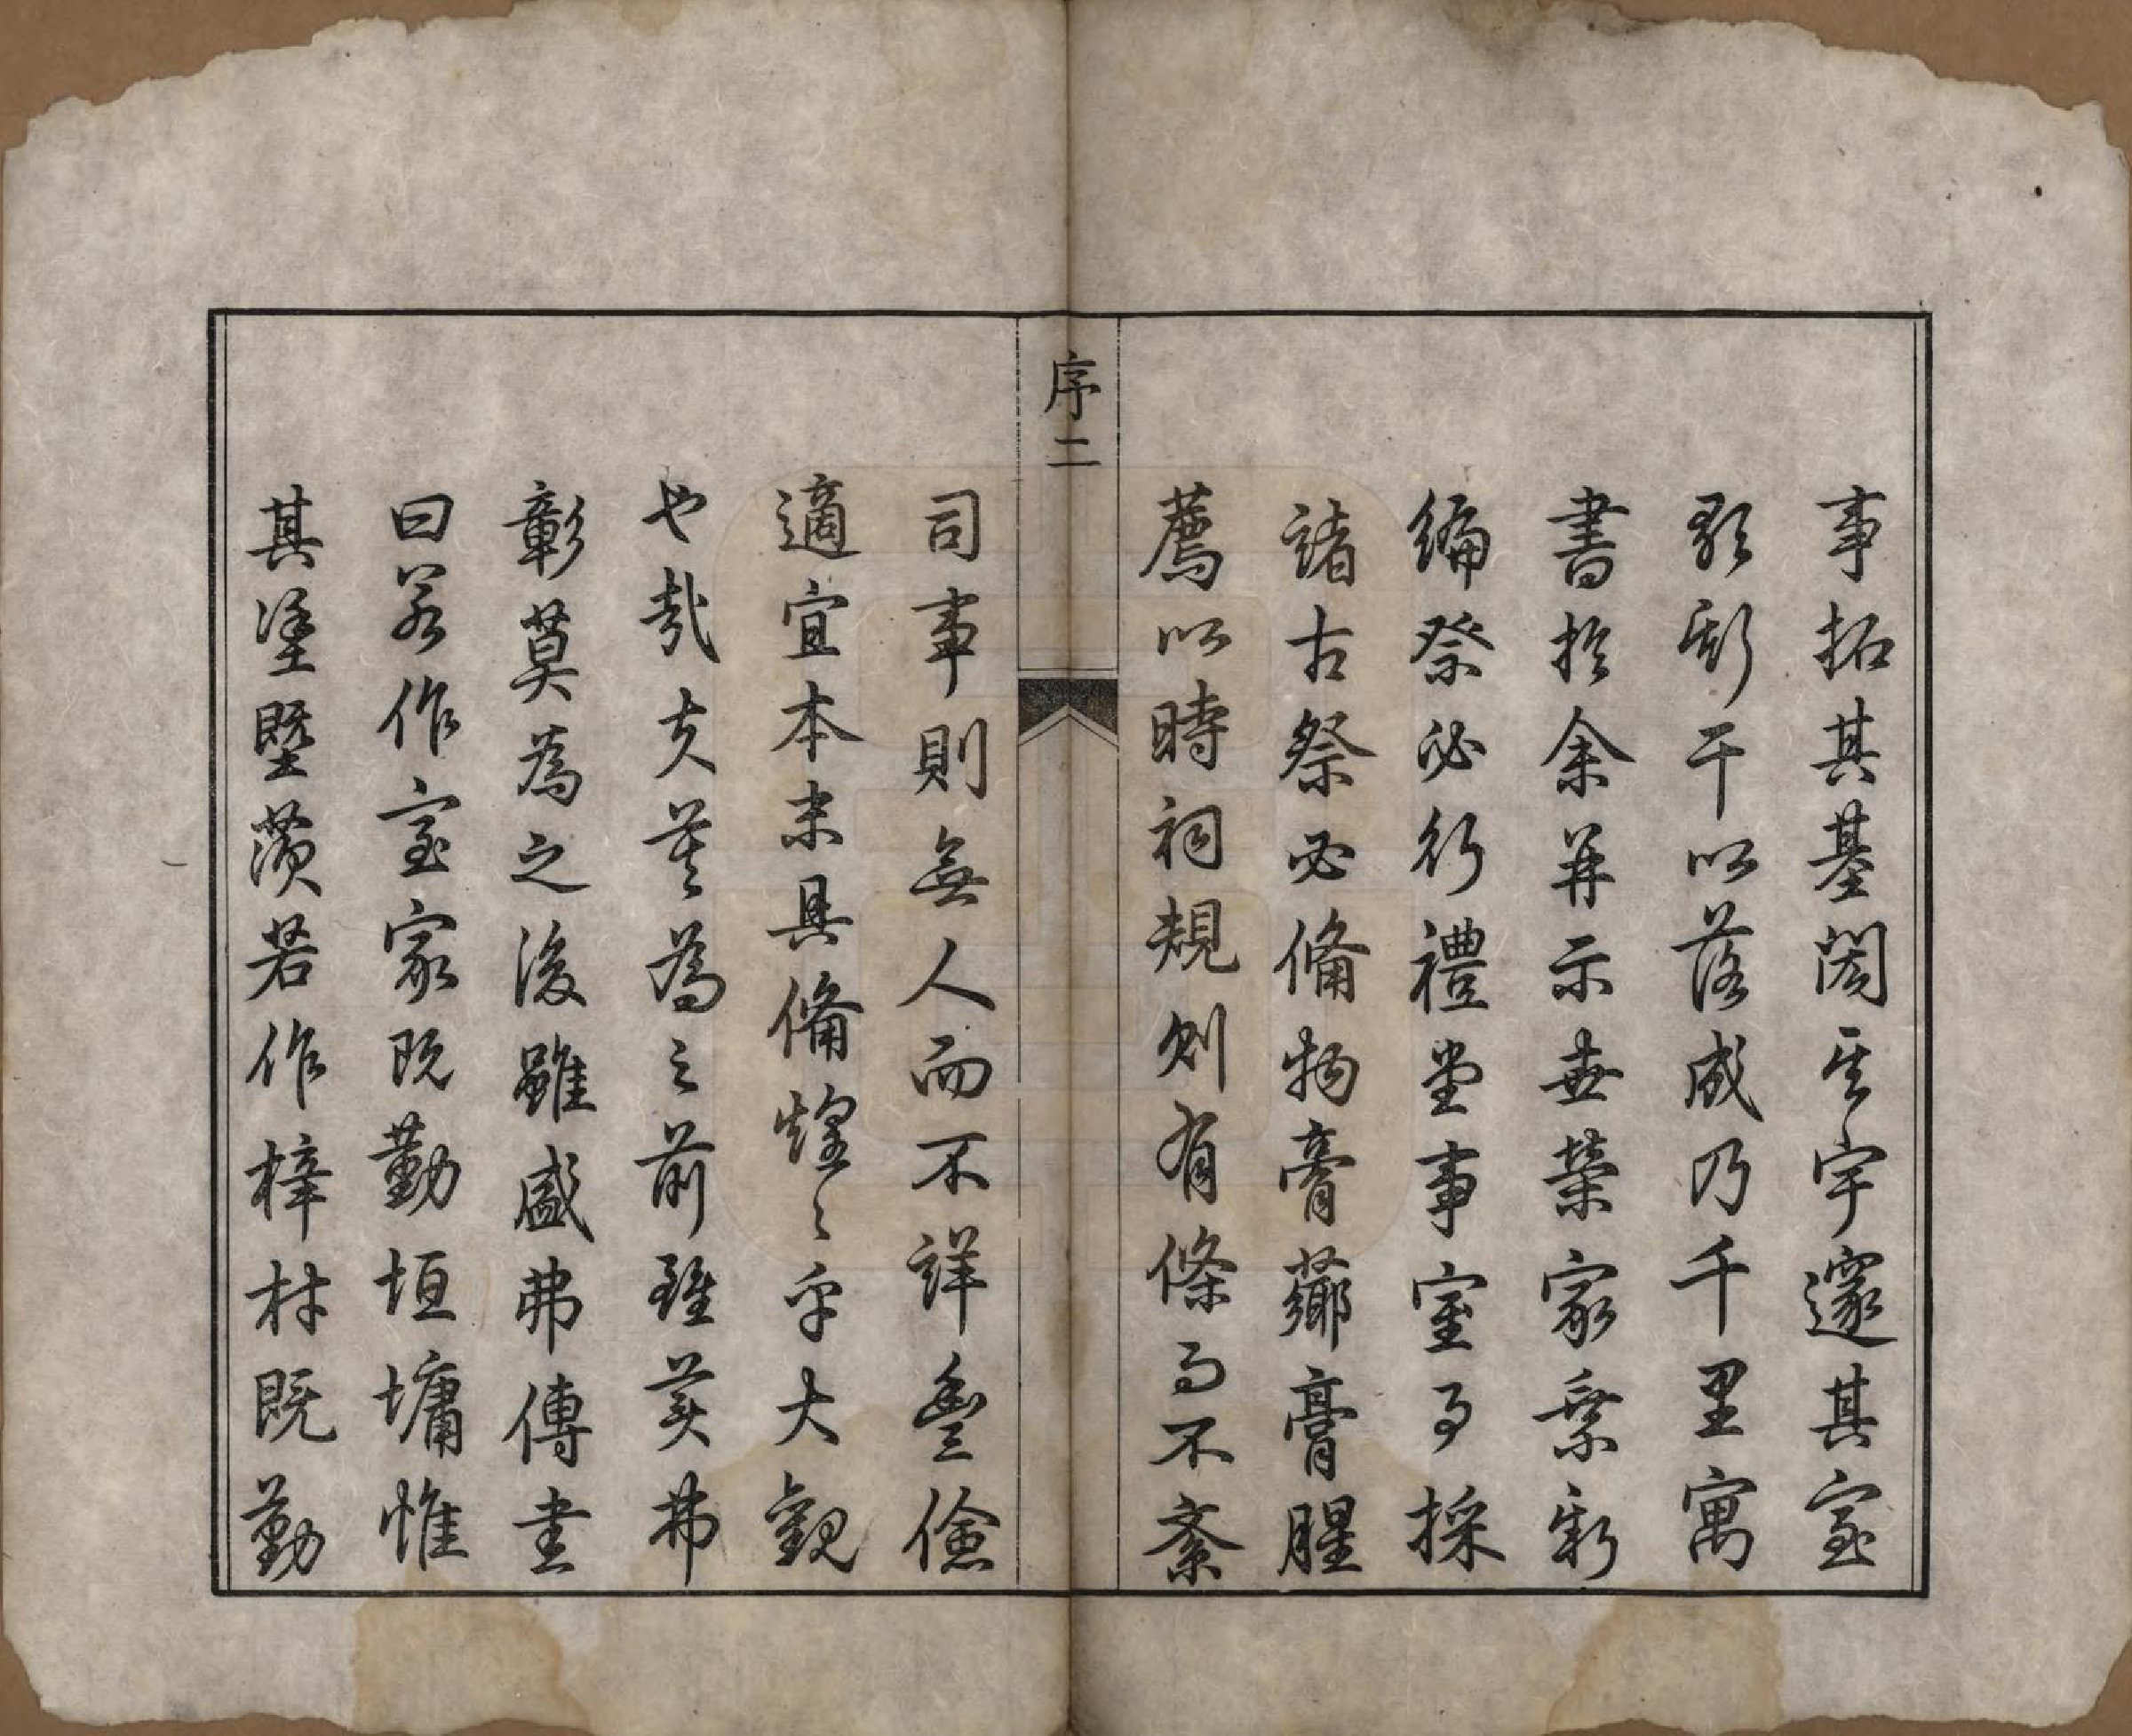 事拓其基閎其宇邃其室
歌斯干以落成乃千里寓
書於余并示世榮家乘新
編祭必行禮堂事室事採
諸古祭必備物膏薌膏腥
薦以時祠規則有條而不紊
序二
司事則無人而不詳豐儉
適宜本末具備煌〻乎大觀
也哉夫莫為之前雖美弗
彰莫為之後雖盛弗傳書
曰若作室家既勤垣墉惟
其塗塈薋若作梓材既勤